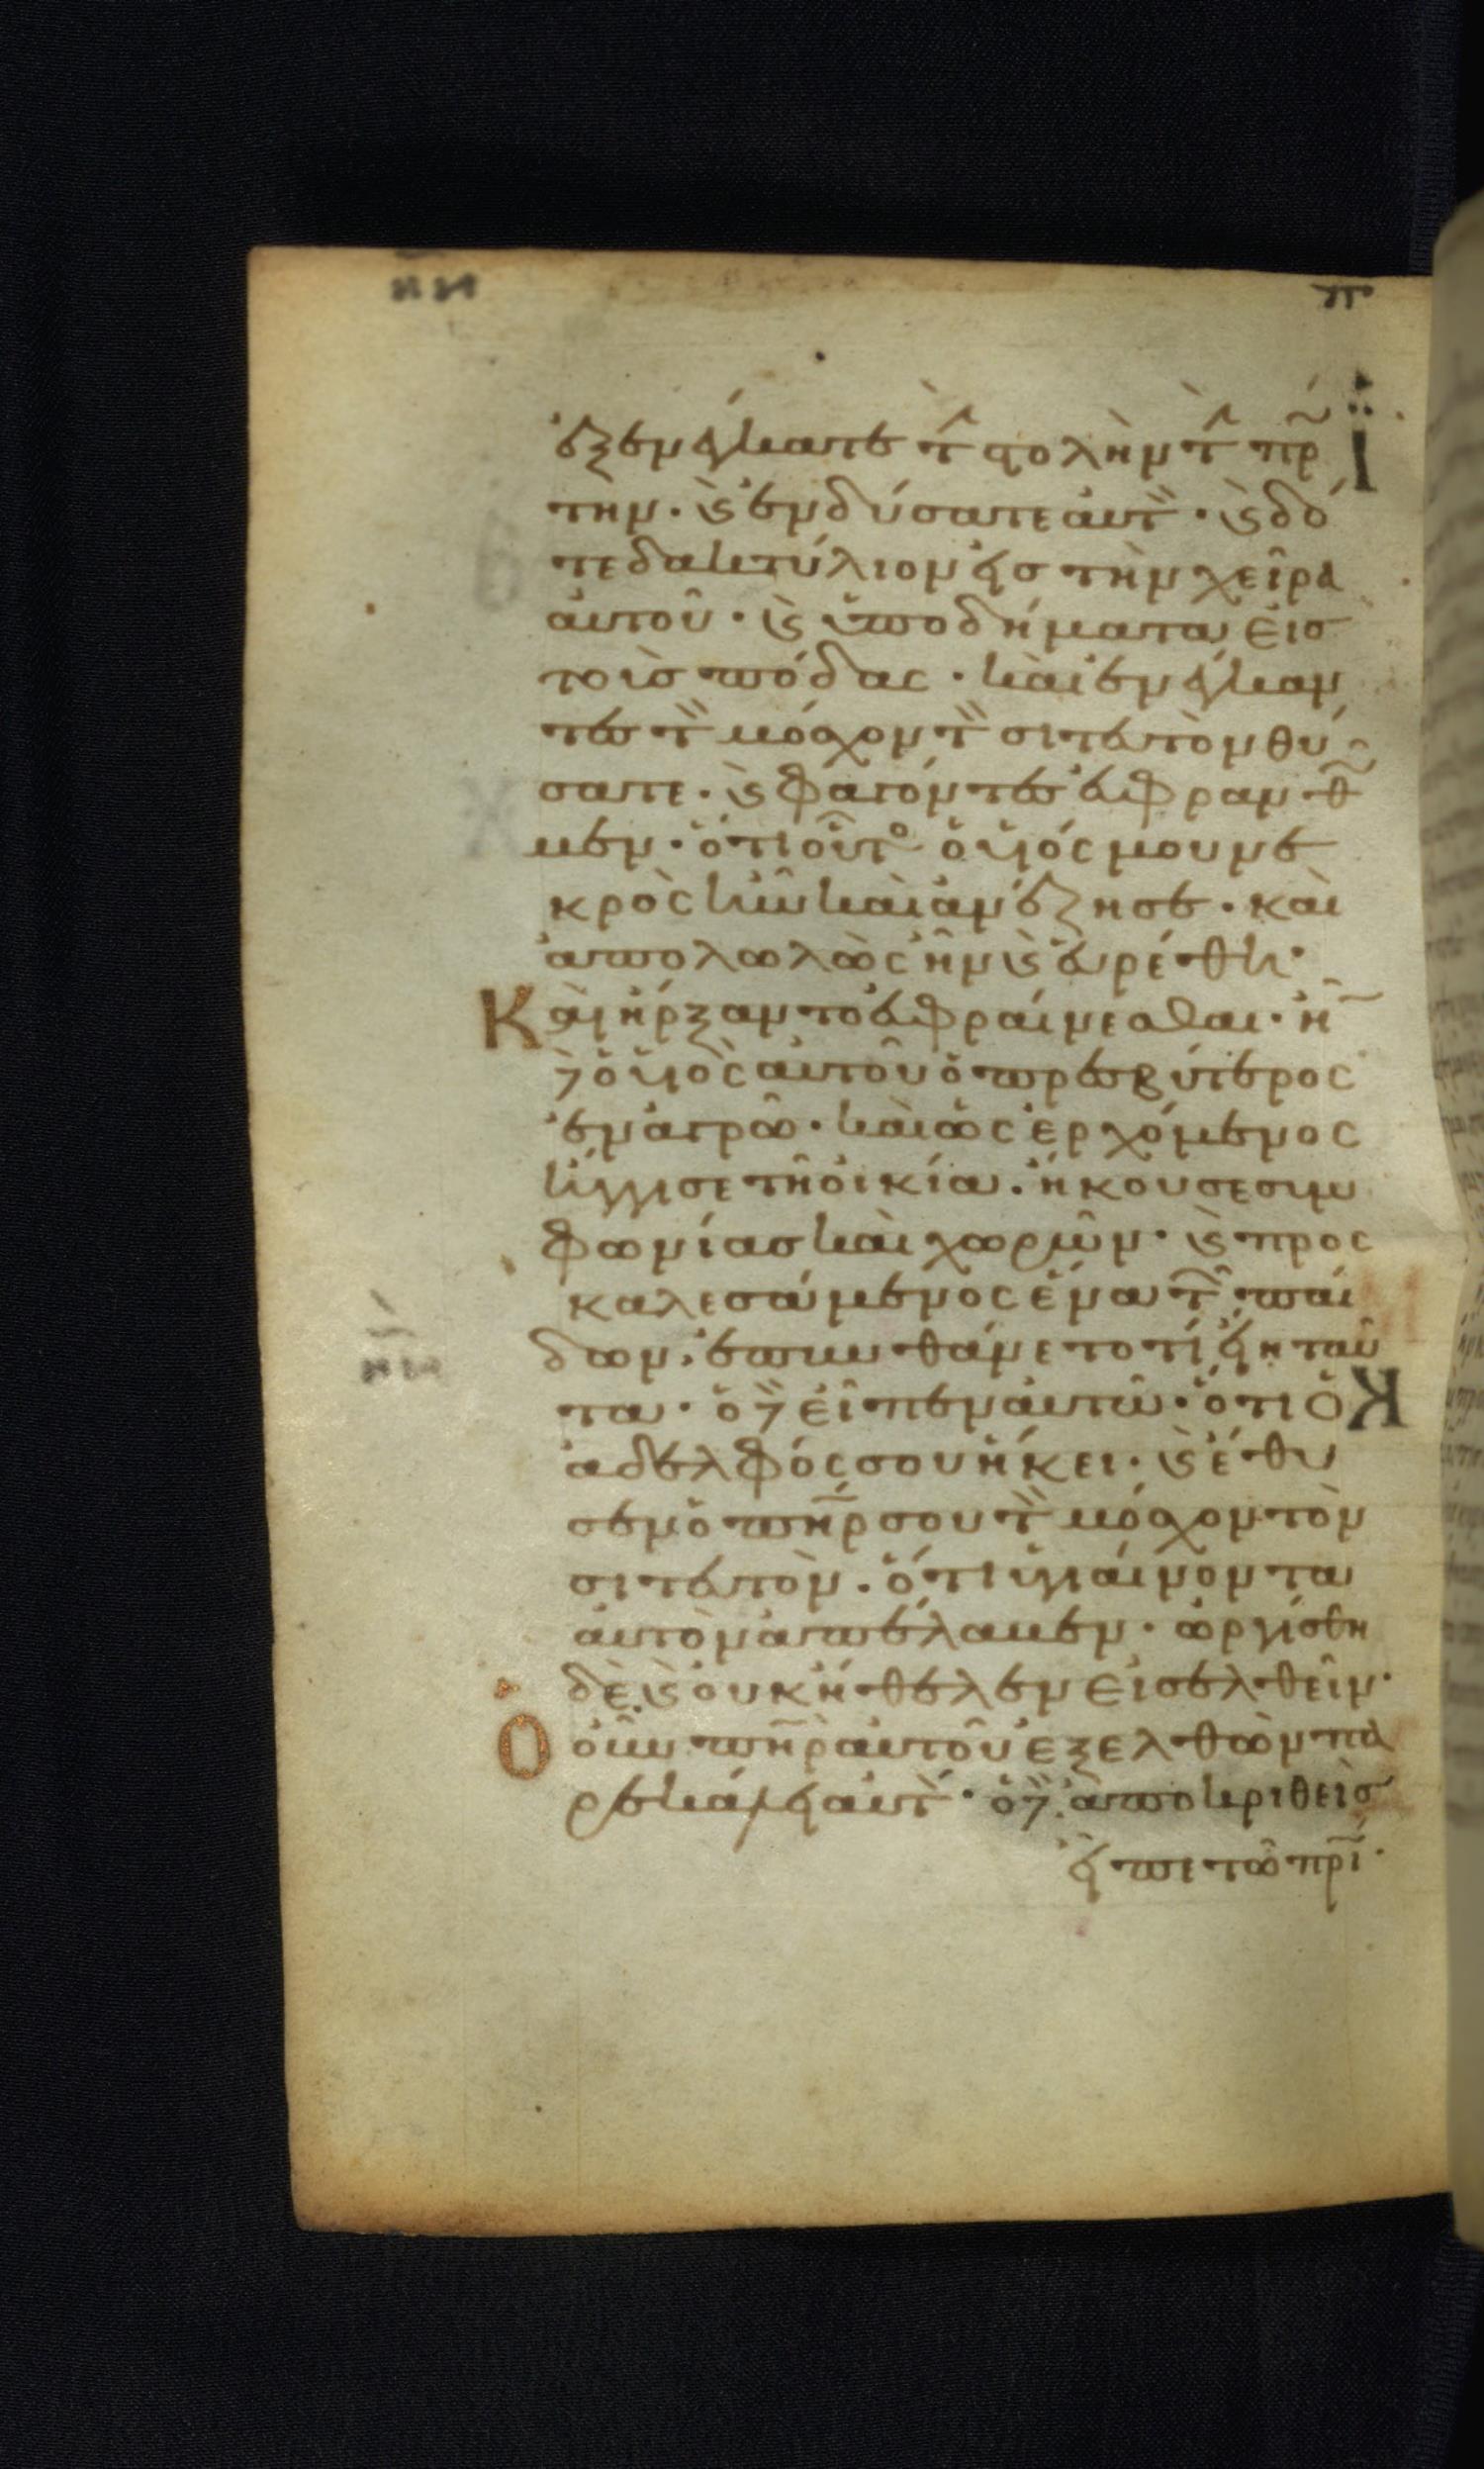 ἐξενέγκατε τ̂ στολὴν τ̂ πρ̃
την· ϗ ἐνδύσατε αὐτ̏· ϗ δό
τε δακτύλιον εἰσ τὴν χεῖρα
αὐτοῦ· ϗ ὑποδήματα εἰσ
τοὺσ πόδας· καὶ ἐνέγκαν
τεσ τ̏ μόσχον τ̏ σιτευτὸν θύ
σατε· ϗ φαγόντεσ εὐφρανθ̃
μεν· ὅτι οὗτο ὁ υἱός μου νε
κρὸς ἦν καὶ ἀνέζησε· καὶ
ἀπολωλὼς ἦν ϗ εὑρέθη·
Καὶ ἤρξαντο εὐφραίνεσθαι· ἦ
δὲ ὁ υἱὸς αὐτοῦ ὁ πρεσβύτερος
ἐν ἀγρῶ· καὶ ὡς ἐρχόμενος
ἤγγισε τῆ οἰκία· ἤκουσε συμ
φωνίασ καὶ χορῶν· ϗ προς
καλεσάμενος ἕνα τ̂ παί
δων· ἐπυνθάνετο τί εἴη ταῦ
τα· ὁ δὲ εἶπεν αὐτῶ· ὅτι ὁ
ἀδελφός σου ἥκει· ϗ ἔθυ
σεν ὁ πηρ̃ σου τ̏ μόσχον τὸν
σιτευτὸν· ὅτι ὑγιαίνοντα
αὐτὸν ἀπέλαβεν· ὠργίσθη
δὲ ϗ οὐκ ἤθελεν εἰσελθεῖν·
Ὁ οὖν πηρ̃ αὐτοῦ ἐξελθὼν πα
ρεκάλει αὐτ̀· ὁ δὲ ἀποκριθεὶσ
εἶπε τῶ πρι̃·